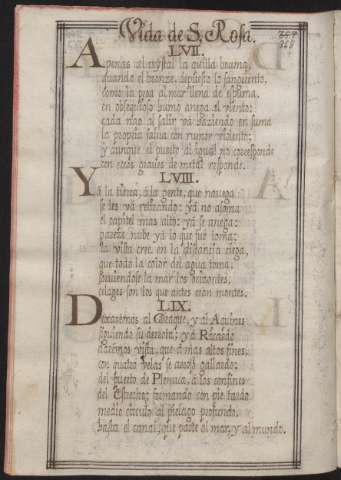 Vida de S. Rosa.
LVII.
Apenas al crystal la quilla bruma,
quando el bronze, depuesto lo sangriento,
conmina pesa al mar llena de espuma,
en obsequioso humo anega el viento:
cada nao al salir va haziendo en suma
la propria salva con rumor violento;
y aunque el puerto al igual no corresponde
con ecos graves de metal responde.
LVIII.
Ya la tierra, à la gente, que navega
se les va retirando: ya no asoma
el capitel mas alto: ya se anega:
parece nube ya lo que fue loma:
la vista cree en la distancia ciega,
que todo la color del agua toma,
sorviendose la mar los orizontes,
celages son los que antes eran montes.
LIX.
Dexaremos al Cordaque, y al Aquines
siguiendo su derrota; y à Ricardo
daremos vista, que à mas altos fines,
con quatro velas se arrojò gallardo:
del puerto de Plemua, à los confines
del Estrecho; formando con pie tardo
medio circulo al pielago profundo,
hasta el canal, que parte al mar, y al mundo.